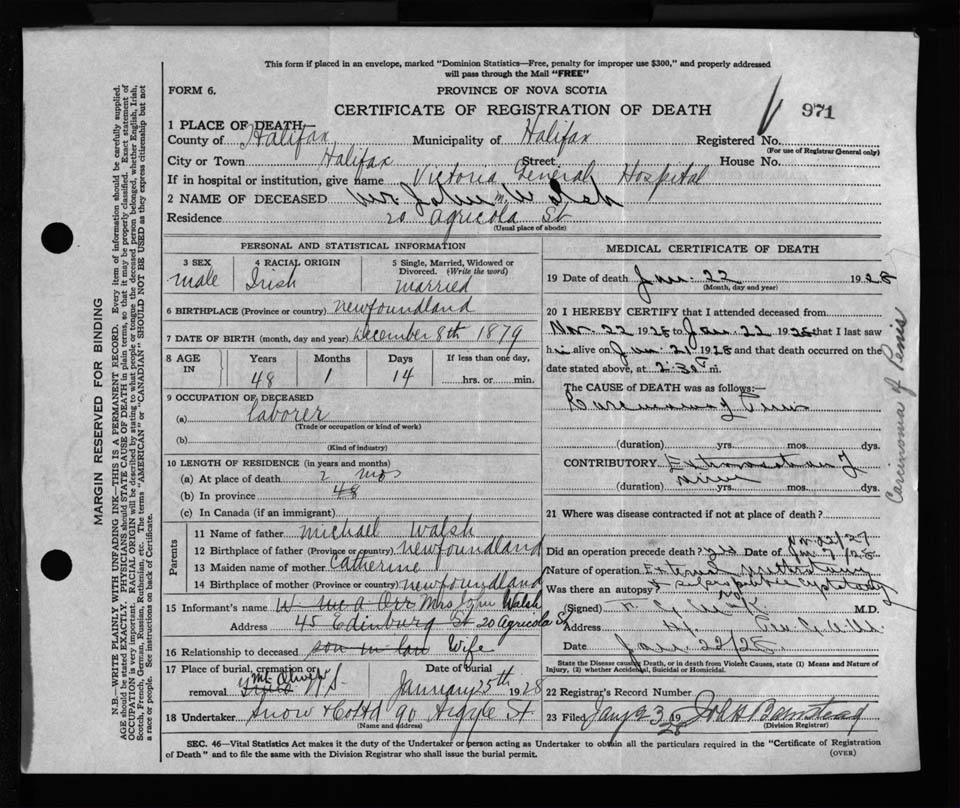 This form if placed in an envelope, marked "Dominion Statistics—Free, penalty for improper use $300," and properly addressed
will pass through the Mail "FREE"
FORM 6.
PROVINCE OF NOVA SCOTIA
CERTIFICATE OF REGISTRATION OF DEATH
971
1 PLACE OF DEATH—
County of Halifax Municipality of Halifax Registered No.
(For use of Registrar General only)
City or Town Halifax Street House No.
If in hospital or institution, give name Victoria General Hospital
2 NAME OF DECEASED Mr. John M. Walsh
Residence 20 Agricola St
(Usual place of abode)
PERSONAL AND STATISTICAL INFORMATION
3 SEX 4 RACIAL ORIGIN 5 Single, Married, Widowed or
Divorced. (Write the word)
male Irish married
6 BIRTHPLACE (Province or country) Newfoundland
7 DATE OF BIRTH (month, day and year) December 8th 1879
8 AGE IN Years Months Days If less than one day,
48 1 14 hrs. or min.
9 OCCUPATION OF DECEASED
(a) laborer
(Trade or occupation or kind of work)
(b)
(Kind of industry)
10 LENGTH OF RESIDENCE (in years and months)
(a) At place of death 2 mos
(b) In province 48
(c) In Canada (if an immigrant)
Parents
11 Name of father Michael Walsh
12 Birthplace of father (Province or country) Newfoundland
13 Maiden name of mother Catherine
14 Birthplace of mother (Province or country) Newfoundland
15 Informant's name W. Mc a Orr Mrs John Walsh
Address 45 Edinburg St 20 Agricola St
16 Relationship to deceased son in law Wife
17 Place of burial, cremation or Date of burial
removal Mt. Olivet N.S. January 25th 1928
18 Undertaker Snow & Co Ltd 90 Argyle St
(Name and address)
MEDICAL CERTIFICATE OF DEATH
19 Date of death Jan. 22 1928
(Month, day and year)
20 I HEREBY CERTIFY that I attended deceased from
Nov. 22 1928 to Jan. 22 1928 that I last saw
him alive on Jan. 21 1928 and that death occurred on the
date stated above, at 2:30 m.
The CAUSE of DEATH was as follows:—
Carcinoma of Penis
(duration) yrs. mos. dys.
CONTRIBUTORY Extravasation of
urine
(duration) yrs. mos. dys.
Carcinoma of Penis
21 Where was disease contracted if not at place of death?
Nov. 22/27
Did an operation precede death? yes Date of Jan. 7/28
Nature of operation External urethrotomy
Was there an autopsy? & suprapubic cystotomy
no
(Signed) M.D.
Address
Date Jan. 22/28
State the Disease causing Death, or in death from Violent Causes, state (1) Means and Nature of
Injury, (2) whether Accidental, Suicidal or Homicidal.
22 Registrar's Record Number
23 Filed Jany 23 1928
(Division Registrar)
SEC. 46—Vital Statistics Act makes it the duty of the Undertaker or person acting as Undertaker to obtain all the particulars required in the "Certificate of Registration
of Death" and to file the same with the Division Registrar who shall issue the burial permit.
(OVER)
MARGIN RESERVED FOR BINDING
N.B.—WRITE PLAINLY WITH UNFADING INK—THIS IS A PERMANENT RECORD. Every item of information should be carefully supplied.
AGE should be stated EXACTLY. PHYSICIANS should STATE CAUSE OF DEATH in plain terms, so that it may be properly classified. Exact statement of
OCCUPATION is very important. RACIAL ORIGIN will be described by stating to what people or tongue the deceased person belonged, whether English, Irish,
Scotch, French, German, Russian, Ruthenian, etc. The terms "AMERICAN" or "CANADIAN" SHOULD NOT BE USED as they express citizenship but not
a race or people. See instructions on back of Certificate.